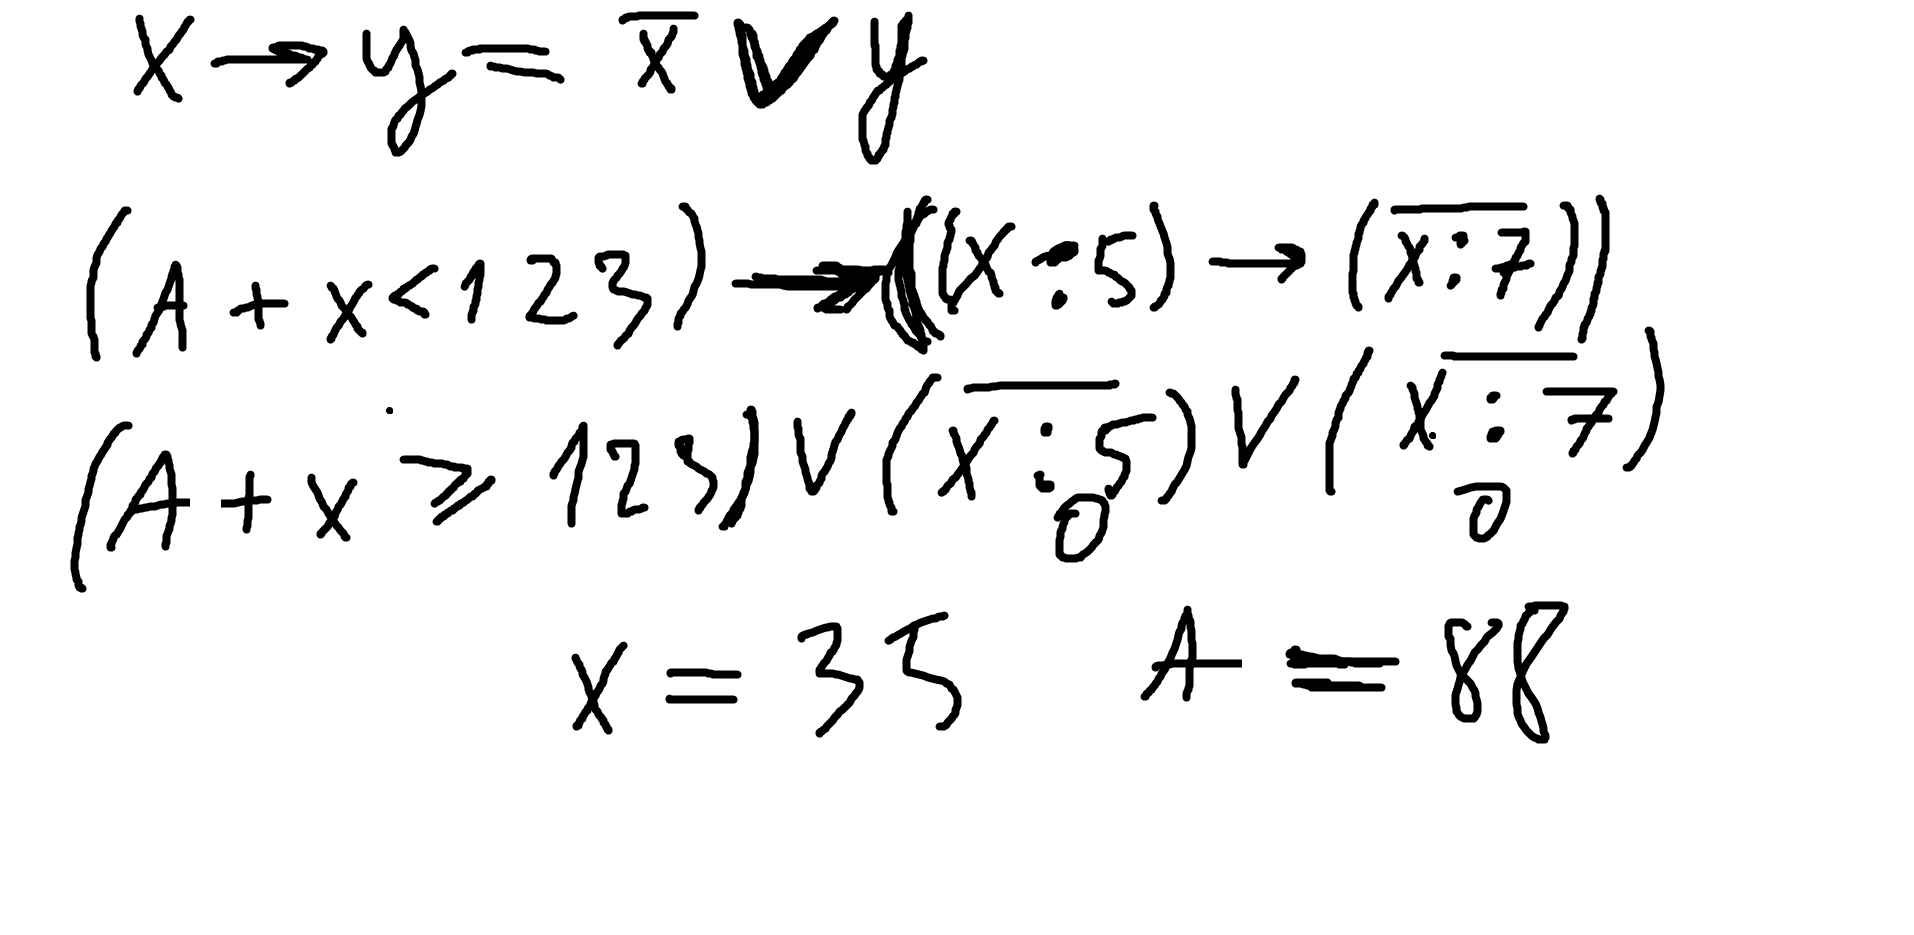 x → y = x̅ V y
(A + x < 123) → ((x ⋮ 5) → (x̅ ⋮̅ 7̅))
(A + x ⩾ 123) V (x̅ ⋮̅ 5̅) V (x̅ ⋮̅ 7̅)
0 0
x = 35 A = 88